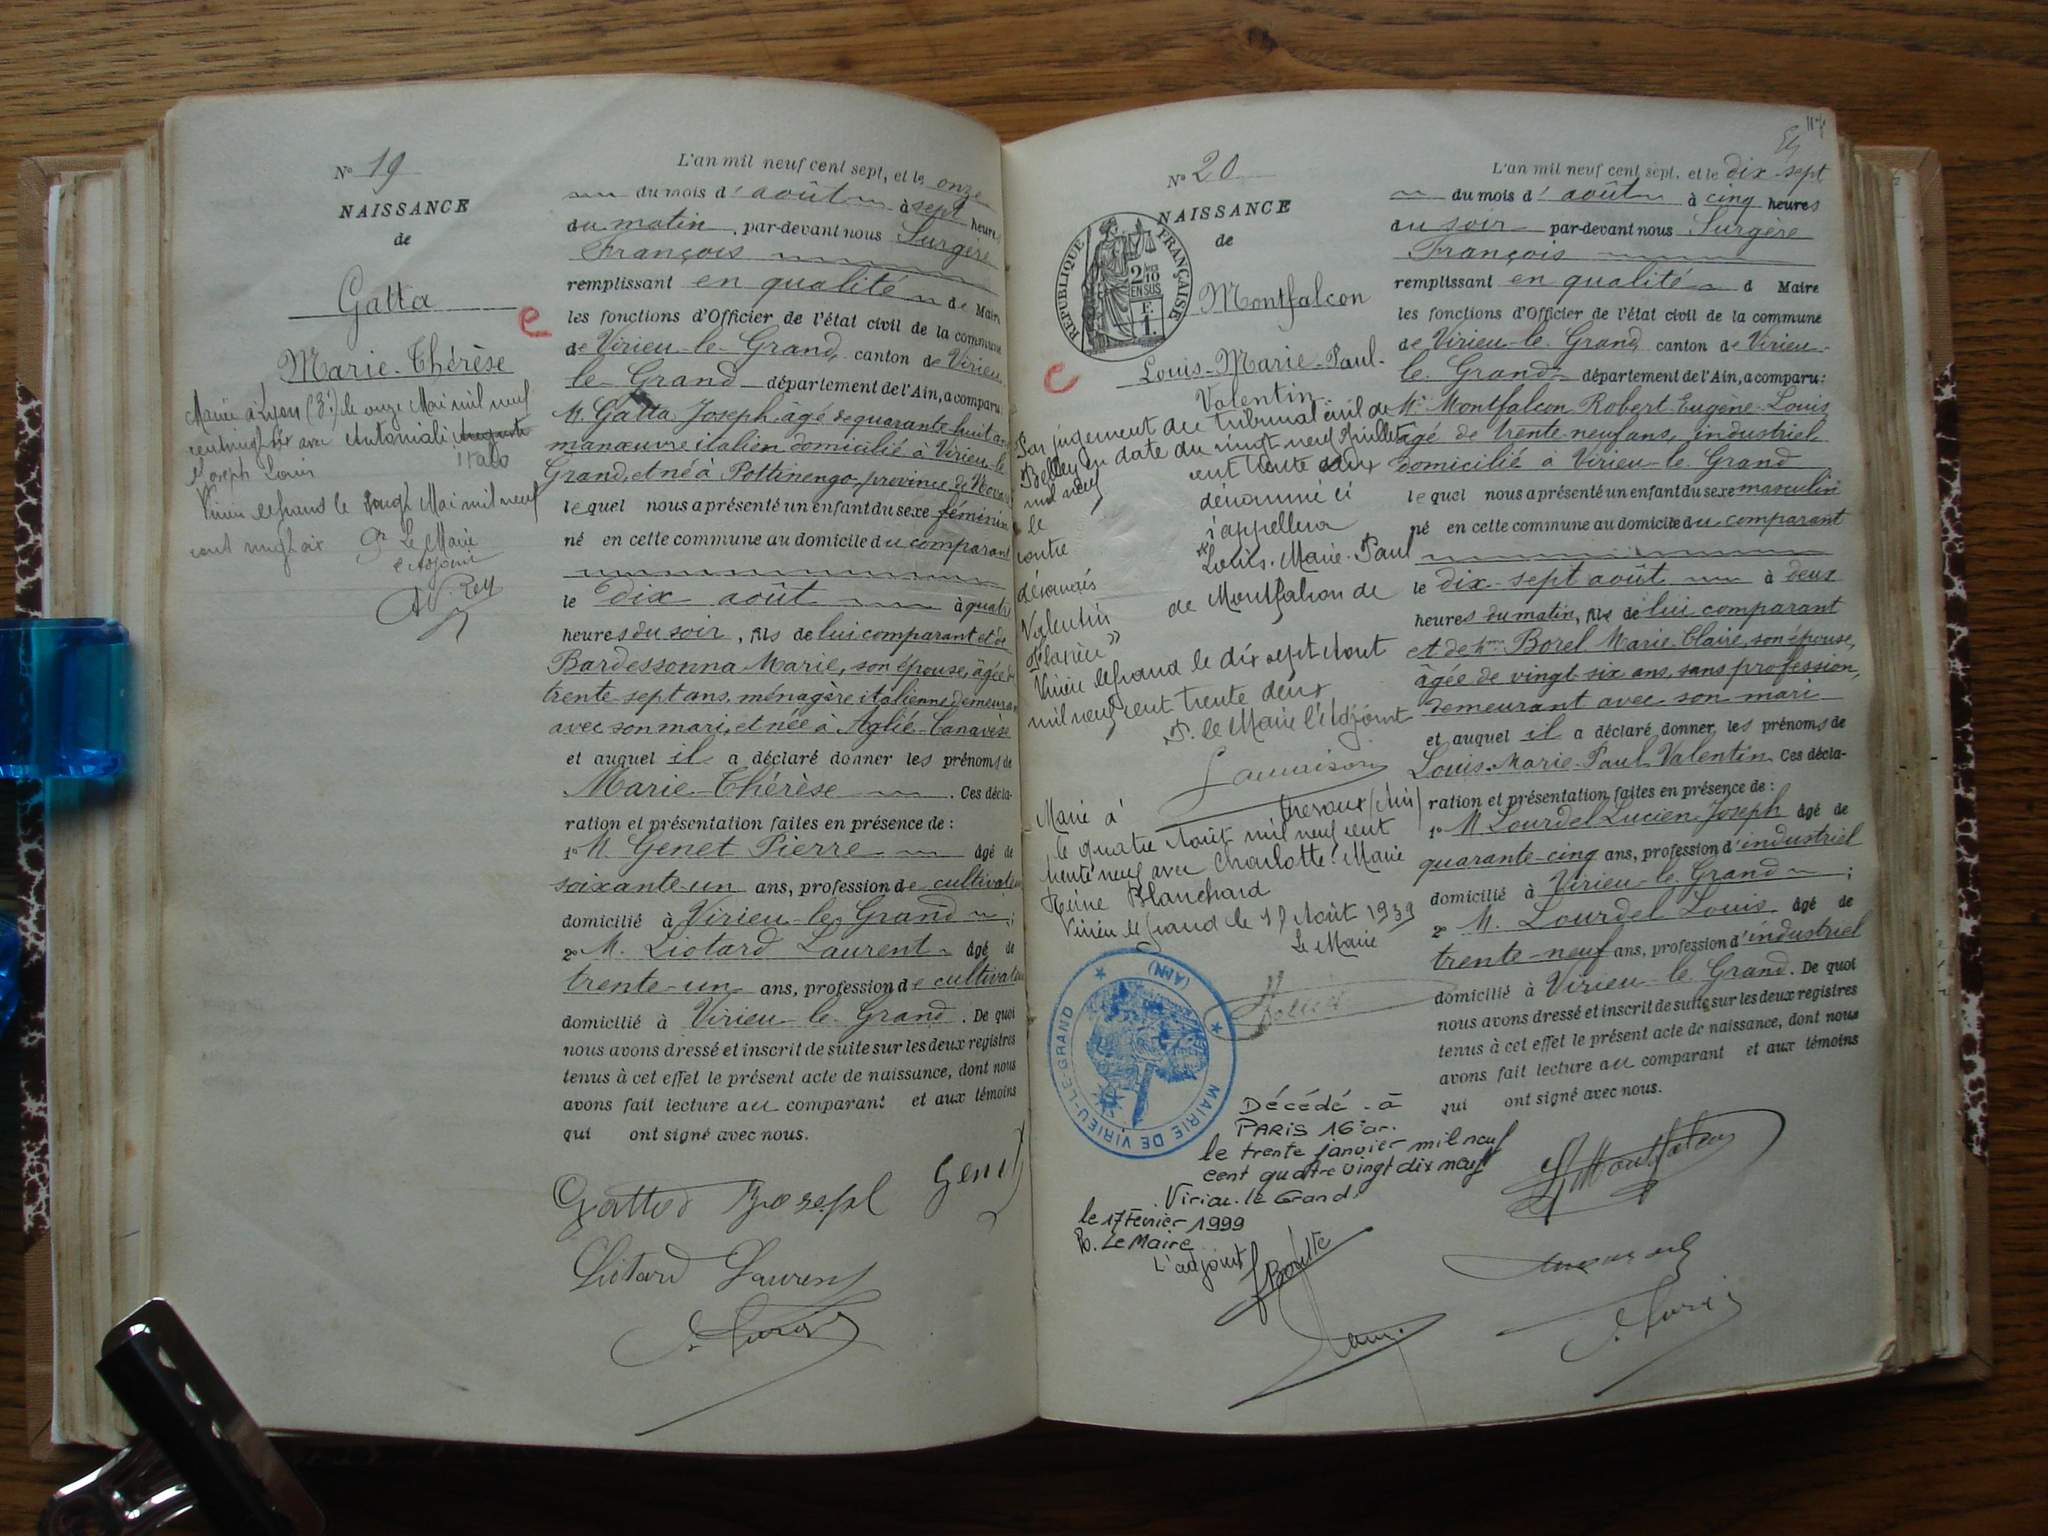 N° 19
NAISSANCE
de
Gatta
Marie-Thérèse
Mariée à Lyon (3e) le onze Mai mil neuf
cent vingt six avec Antoniali Auguste
Italo
Joseph Louis
Virieu le grand le Mai mil neuf
cent vingt six Pr Le Maire
L'Adjoint
Rey
e
L'an mil neuf cent sept, et le onze
du mois d'août à sept heures
du matin, par-devant nous Surgère
François
remplissant en qualité de Maire
les fonctions d'Officier de l'état civil de la commune
de Virieu-le-Grand, canton de Virieu-
le-Grand département de l'Ain, a comparu:
M. Gatta Joseph, âgé de quarante huit ans
manœuvre italien domicilié à Virieu-le-
Grand, et né à Pottinengo, province de Novare
lequel nous a présenté un enfant du sexe féminin
né en cette commune au domicile du comparant
le dix août à quatre
heures du soir, fils de lui comparant et de
Bardessonna Marie, son épouse, âgée de
trente sept ans, ménagère italienne demeurant
avec son mari, et née à Aglié-Canavèse
et auquel il a déclaré donner les prénoms de
Marie-Thérèse. Ces décla-
ration et présentation faites en présence de :
1° M. Genet Pierre âgé de
soixante-un ans, profession de cultivateur
domicilié à Virieu-le-Grand ;
2° M. Liotard Laurent âgé de
trente-un ans, profession de cultivateur
domicilié à Virieu-le-Grand. De quoi
nous avons dressé et inscrit de suite sur les deux registres
tenus à cet effet le présent acte de naissance, dont nous
avons fait lecture au comparant et aux témoins
qui ont signé avec nous.
Gatta Joseph Genet
Liotard Laurent
117
N° 20
NAISSANCE
de
RÉPUBLIQUE FRANÇAISE
2/10 EN SUS
F. 1.
Montfalcon
Louis-Marie-Paul-
Valentin
c
Par jugement du tribunal civil de
Belley en date du vingt neuf Juillet
mil neuf cent trente deux
le dénommé ci
contre s'appellera
désormais "Louis-Marie-Paul
Valentin de Montfalcon de
Flaxieu"
Virieu le grand le dix sept Août
mil neuf cent trente deux
P. le Maire l'Adjoint
Marié à Trévoux (Ain)
le quatre Août mil neuf cent
trente neuf avec Charlotte Marie
Reine Blanchard
Virieu le grand le Août 1939
Le Maire
MAIRIE DE VIRIEU-LE-GRAND (AIN)
Décédé à
PARIS 16e ar.
le trente janvier mil neuf
cent quatre vingt dix neuf
Virieu-le-Grand
le 17 Février 1999
P. Le Maire
L'adjoint
L'an mil neuf cent sept, et le dix sept
du mois d'août à cinq heures
du soir par-devant nous Surgère
François
remplissant en qualité d Maire
les fonctions d'Officier de l'état civil de la commune
de Virieu-le-Grand, canton de Virieu-
le-Grand département de l'Ain, a comparu:
Mr Montfalcon Robert Eugène Louis
âgé de trente-neuf ans, industriel
domicilié à Virieu-le-Grand
lequel nous a présenté un enfant du sexe masculin
né en cette commune au domicile du comparant
le dix-sept août à deux
heures du matin, fils de lui comparant
et de Borel Marie-Claire, son épouse,
âgée de vingt-six ans, sans profession,
demeurant avec son mari
et auquel il a déclaré donner les prénoms de
Louis-Marie-Paul Valentin. Ces décla-
ration et présentation faites en présence de :
1° M. Lourdel Lucien Joseph âgé de
quarante-cinq ans, profession d'industriel
domicilié à Virieu-le-Grand ;
2° M. Lourdel Louis âgé de
trente-neuf ans, profession d'industriel
domicilié à Virieu-le-Grand. De quoi
nous avons dressé et inscrit de suite sur les deux registres
tenus à cet effet le présent acte de naissance, dont nous
avons fait lecture au comparant et aux témoins
qui ont signé avec nous.